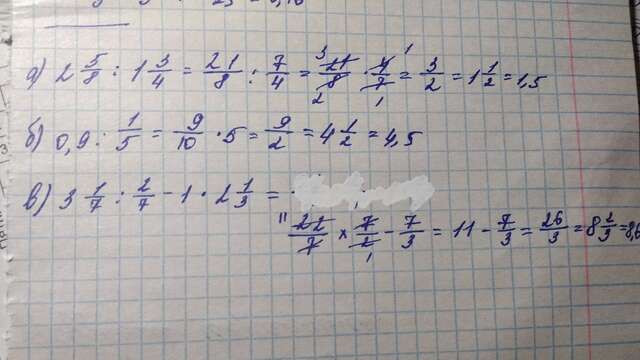 а) 2 5/8 : 1 3/4 = 21/8 : 7/4 = 21/8 · 4/7 = 3/2 = 1 1/2 = 1,5
б) 0,9 : 1/5 = 9/10 · 5 = 9/2 = 4 1/2 = 4,5
в) 3 1/7 : 2/7 - 1 · 2 1/3 =
" 22/7 x 7/2 - 7/3 = 11 - 7/3 = 26/3 = 8 2/3 = 8,6